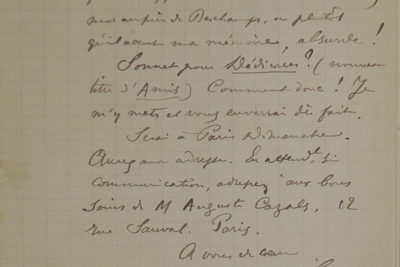 mes auprès de Deschamps, ou plutôt
qu'il accuse ma mémoire, absurde !
Sonnet pour Dédicaces ? (nouveau
titre d'Amis) Comment donc ! Je
m'y mets et vous enverrai dès fait.
Serai à Paris Dimanche.
Aurez mon adresse. En attendt, si
communication, adressez "aux bons
soins de M Auguste Cazals, 12
rue Sauval. Paris.
A vous de cœur